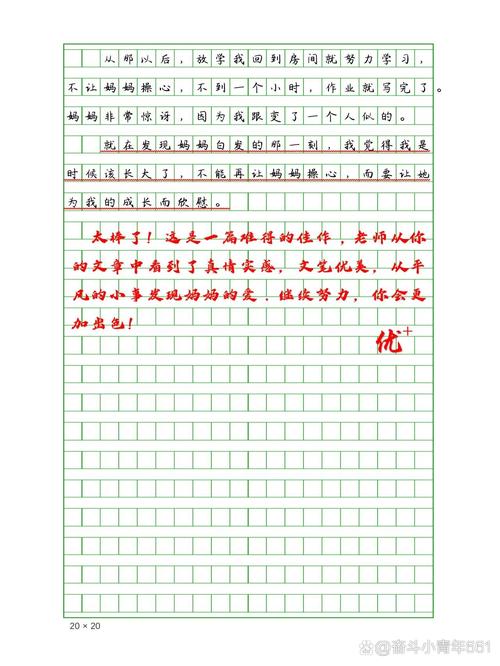 从那以后，放学我回到房间就努力学习，
不让妈妈操心，不到一个小时，作业就写完了。
妈妈非常惊讶，因为我跟变了一个人似的。
就在发现妈妈白发的那一刻，我觉得我是
时候该长大了，不能再让妈妈操心，而要让她
为我的成长而欣慰。
太棒了！这是一篇难得的佳作，老师从你
的文章中看到了真情实感，文笔优美，从平
凡的小事发现妈妈的爱．继续努力，你会更
加出色！
优+
20×20
@奋斗小青年551